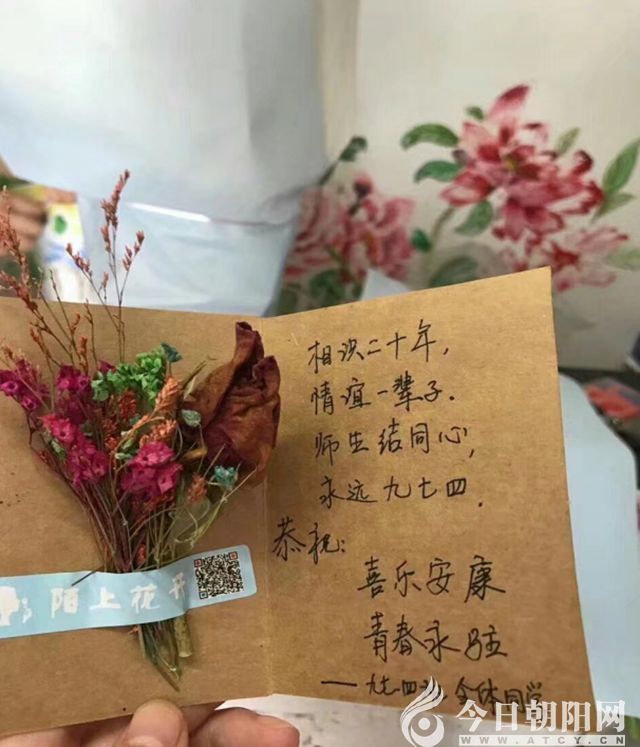 相识二十年，
情谊一辈子.
师生结同心，
永远九七四.
恭祝：
喜乐安康
青春永驻
——九七四 全体同学
陌上花开
今日朝阳网
WWW.ATCY.CN